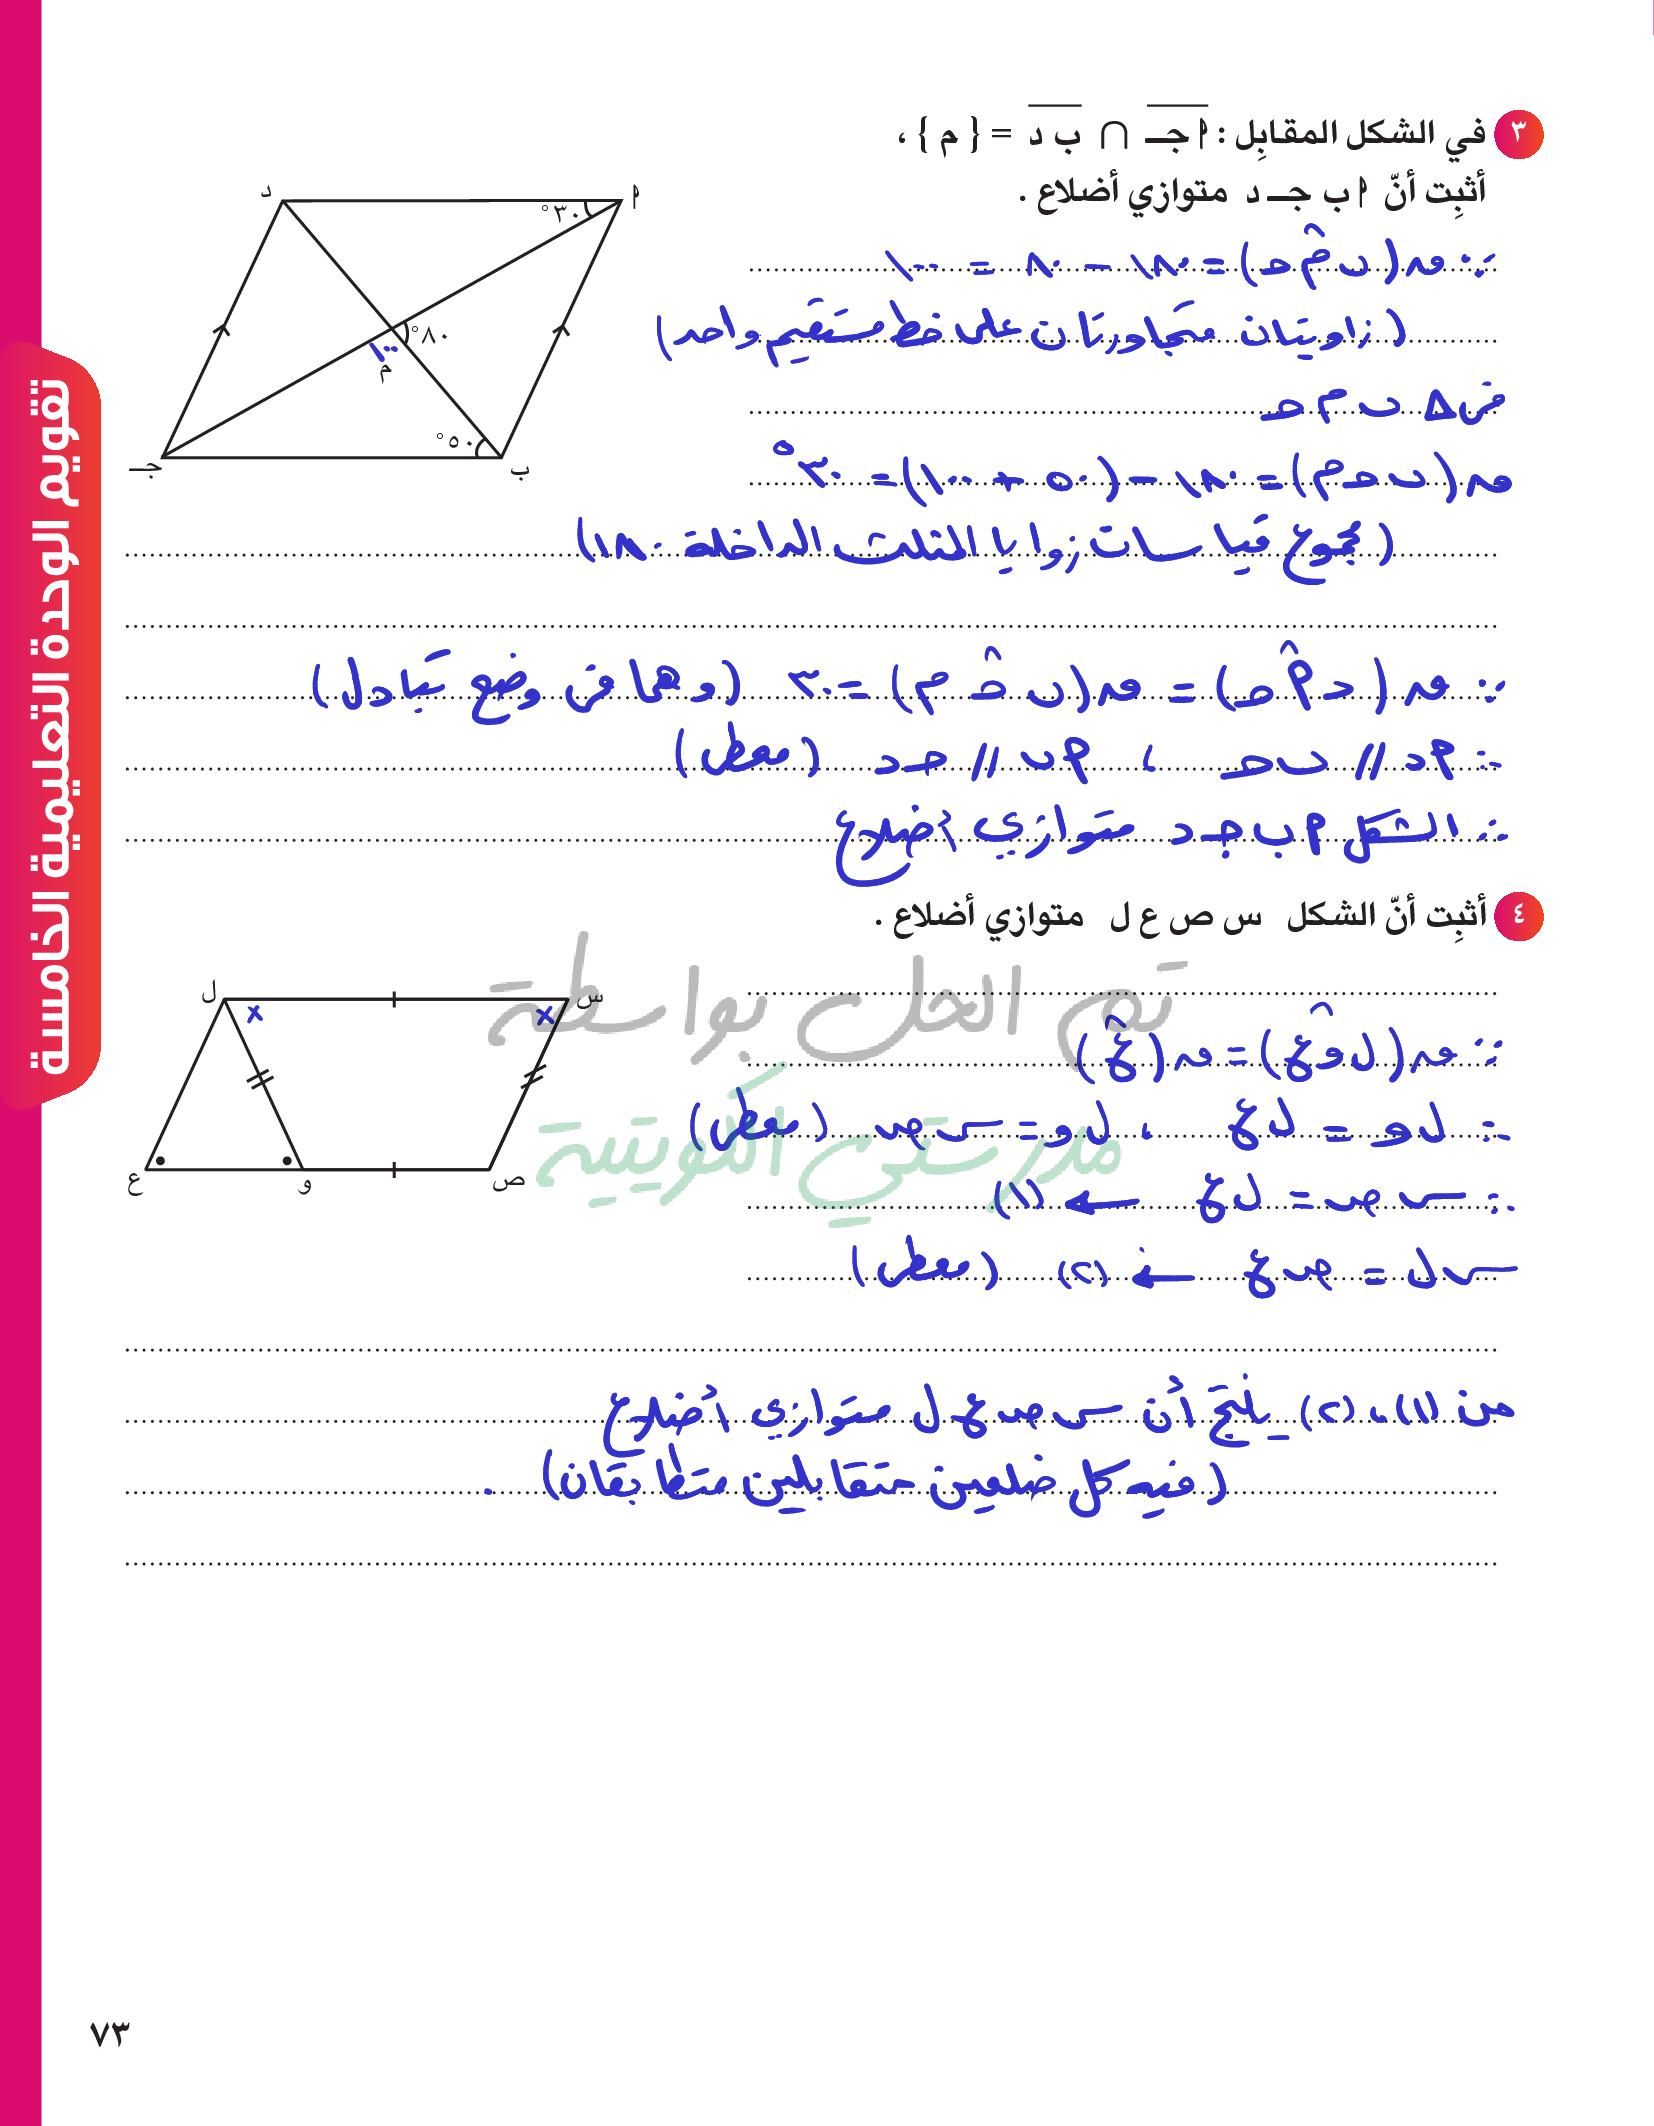 ٣ في الشكل المقابِل : أ جـ ∩ ب د = { م } ،
أثبِت أنّ أ ب جـ د متوازي أضلاع .
د
أ
٣٠°
٨٠°
١٠٠
م
٥٠°
جـ
ب
∵ ق(ب م̂ حـ) = ١٨٠ − ٨٠ = ١٠٠
(زاويتان متجاورتان على خط مستقيم واحد)
في Δ ب م حـ
ق(ب حـ م) = ١٨٠ − (٥٠ + ١٠٠) = ٣٠°
(مجموع قياسات زوايا المثلث الداخلة ١٨٠)
∵ ق(د أ̂ حـ) = ق(ب حـ̂ م) = ٣٠ (وهما في وضع تبادل)
∴ أ د // ب حـ ، أ ب // حـ د (معطى)
∴ الشكل أ ب جـ د متوازي أضلاع
٤ أثبِت أنّ الشكل س ص ع ل متوازي أضلاع .
تم الحل بواسطة
مدرستي الكويتية
ل
س
x
x
ع
و
ص
∵ ق(ل و̂ ع) = ق(ع̂)
∴ ل و = ل ع ، ل و = س ص (معطى)
∴ س ص = ل ع ← (١)
س ل = ص ع ← (٢) (معطى)
من (١) ، (٢) ينتج أن س ص ع ل متوازي أضلاع
(فيه كل ضلعين متقابلين متطابقان) .
تقويم الوحدة التعليمية الخامسة
٧٣